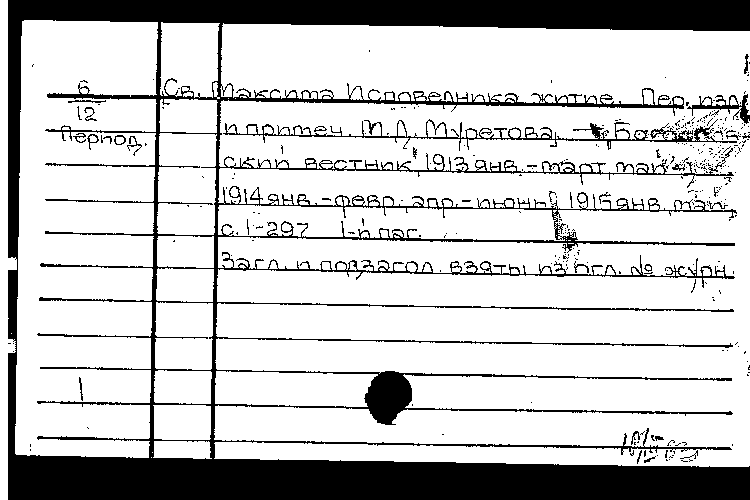 6
12
Период.
Св. Максима Исповедника житие. Пер., изд.
и примеч. М.Д. Муретова. —
ский вестник", 1913 янв.-март, май
1914 янв.-февр., апр.-июнь, 1915 янв., май,
с. 1-297 1-й паг.
Загл. и подзагол. взяты из огл. № журн.
1